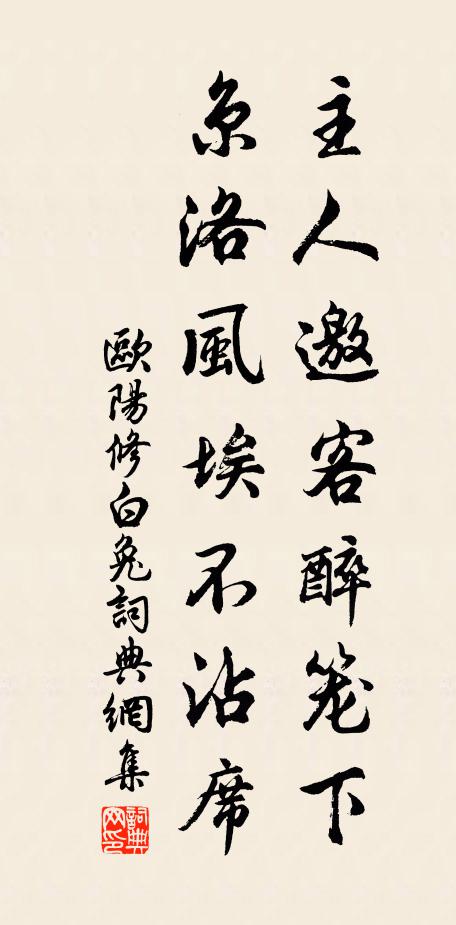 主人邀客醉笼下
京洛風埃不沾席
歐陽修白兔詞典網集
詞典网印